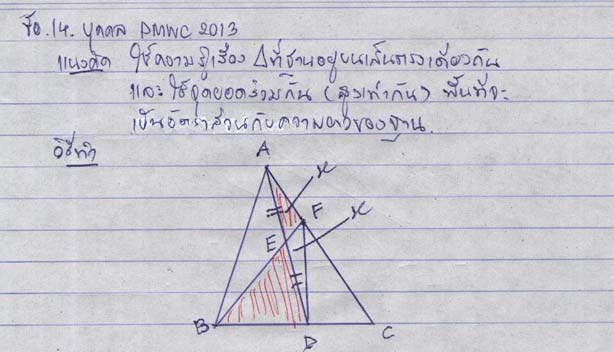 ข้อ.14. บุคคล PMWC 2013
แนวคิด ใช้ความรู้เรื่อง Δ ที่ฐานอยู่บนเส้นตรงเดียวกัน
และใช้จุดยอดร่วมกัน (สูงเท่ากัน) พื้นที่จะ
เป็นอัตราส่วนกับความยาวของฐาน.
วิธีทำ
A
x
F
x
E
B
D
C